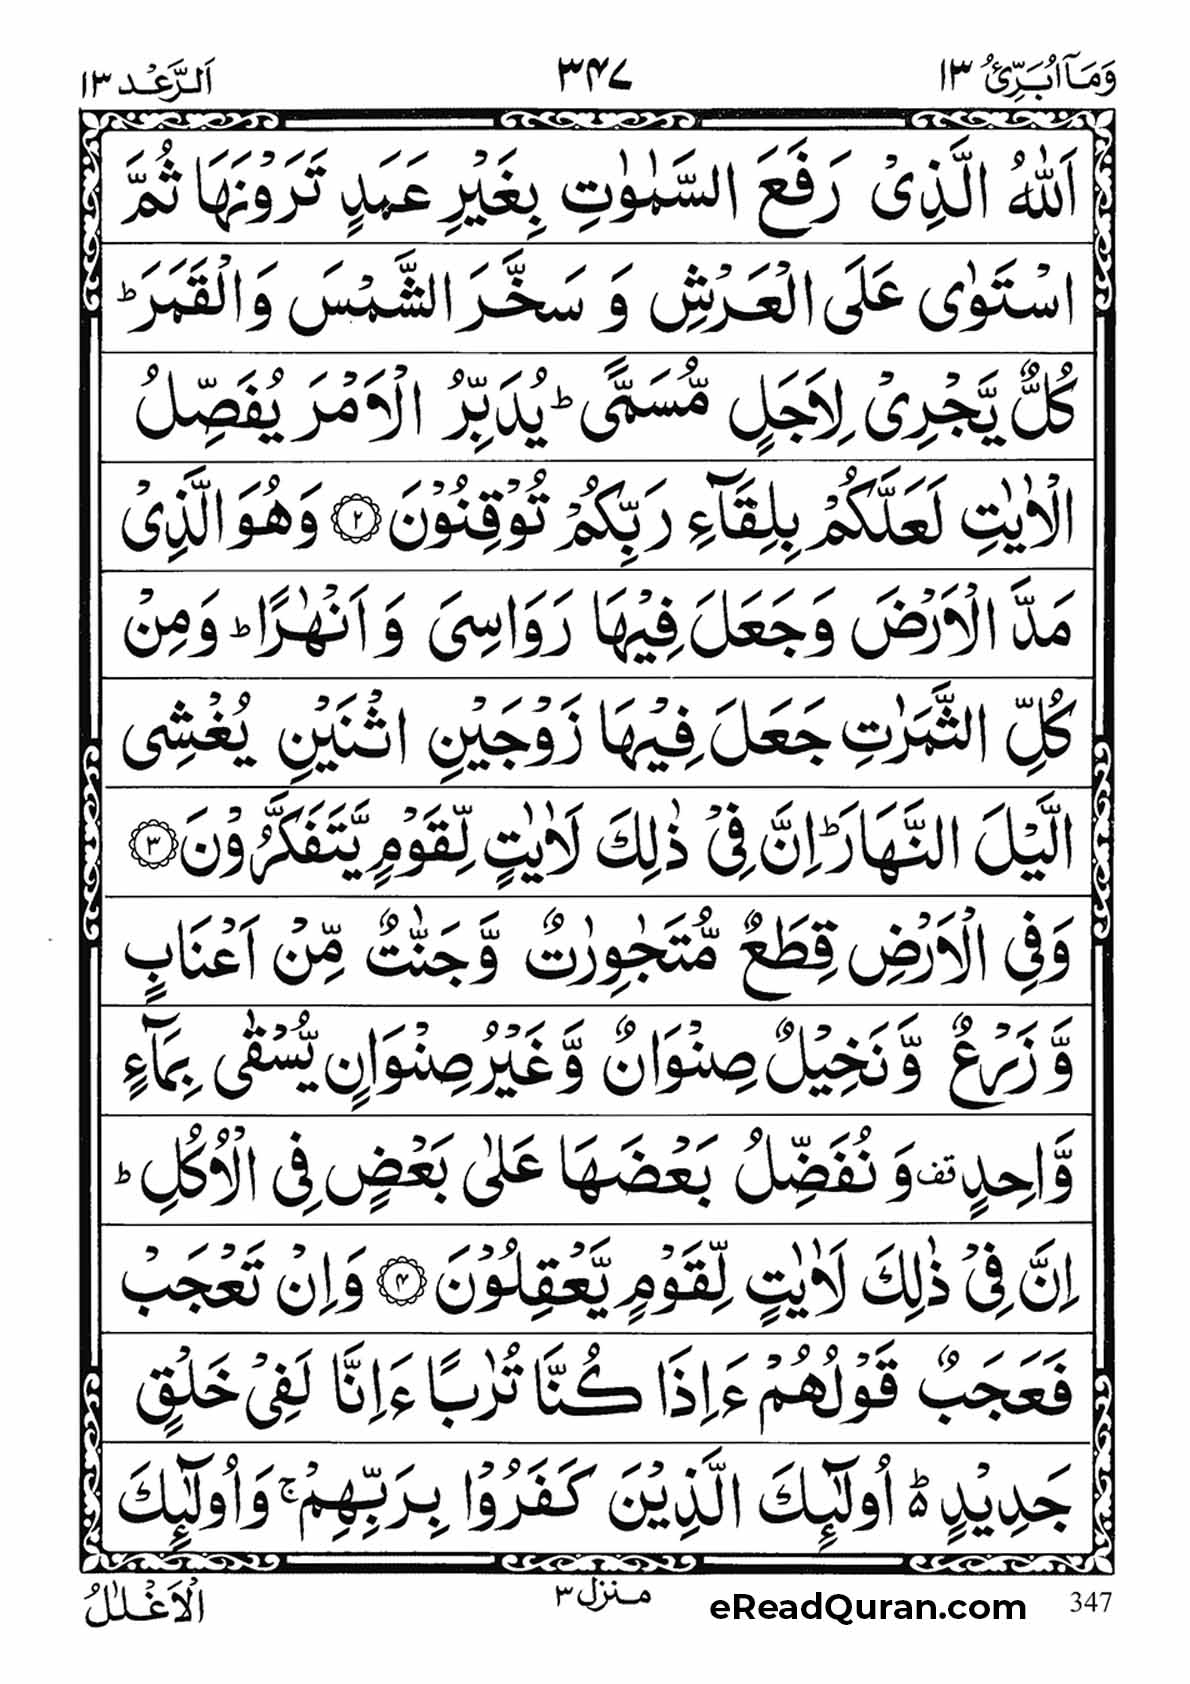 وَمَآ اُبَرِّئُ ۱۳
۳۴۷
اَلرَّعْد ۱۳
اَللّٰهُ الَّذِیْ رَفَعَ السَّمٰوٰتِ بِغَیْرِ عَمَدٍ تَرَوْنَهَا ثُمَّ
اسْتَوٰی عَلَی الْعَرْشِ وَ سَخَّرَ الشَّمْسَ وَالْقَمَرَ ؕ
كُلٌّ یَّجْرِیْ لِاَجَلٍ مُّسَمًّی ؕ یُدَبِّرُ الْاَمْرَ یُفَصِّلُ
الْاٰیٰتِ لَعَلَّكُمْ بِلِقَآءِ رَبِّكُمْ تُوْقِنُوْنَ ۲ وَهُوَ الَّذِیْ
مَدَّ الْاَرْضَ وَجَعَلَ فِیْهَا رَوَاسِیَ وَ اَنْهٰرًا ؕ وَمِنْ
كُلِّ الثَّمَرٰتِ جَعَلَ فِیْهَا زَوْجَیْنِ اثْنَیْنِ یُغْشِی
الَّیْلَ النَّهَارَ ؕ اِنَّ فِیْ ذٰلِكَ لَاٰیٰتٍ لِّقَوْمٍ یَّتَفَكَّرُوْنَ ۳
وَفِی الْاَرْضِ قِطَعٌ مُّتَجٰوِرٰتٌ وَّجَنّٰتٌ مِّنْ اَعْنَابٍ
وَّ زَرْعٌ وَّنَخِیْلٌ صِنْوَانٌ وَّغَیْرُ صِنْوَانٍ یُّسْقٰی بِمَآءٍ
وَّاحِدٍ قف وَ نُفَضِّلُ بَعْضَهَا عَلٰی بَعْضٍ فِی الْاُكُلِ ؕ
اِنَّ فِیْ ذٰلِكَ لَاٰیٰتٍ لِّقَوْمٍ یَّعْقِلُوْنَ ۴ وَاِنْ تَعْجَبْ
فَعَجَبٌ قَوْلُهُمْ ءَاِذَا كُنَّا تُرٰبًا ءَاِنَّا لَفِیْ خَلْقٍ
جَدِیْدٍ ؕ۵ اُولٰٓئِكَ الَّذِیْنَ كَفَرُوْا بِرَبِّهِمْ ۚ وَاُولٰٓئِكَ
الْاَغْلٰلُ
منزل ۳
eReadQuran.com
347